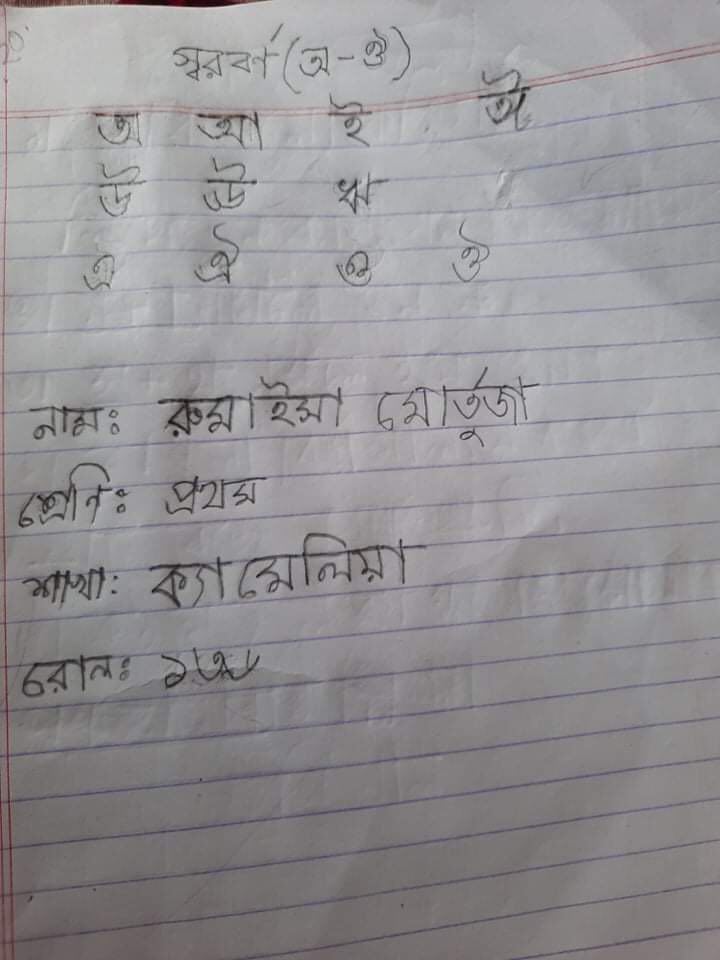 স্বরবর্ণ (অ - ঔ)
অ আ ই ঈ
উ ঊ ঋ
এ ঐ ও ঔ
নামঃ রুমাইসা মোর্তুজা
শ্রেনিঃ প্রথম
শাখা: ক্যামেলিয়া
রোলঃ